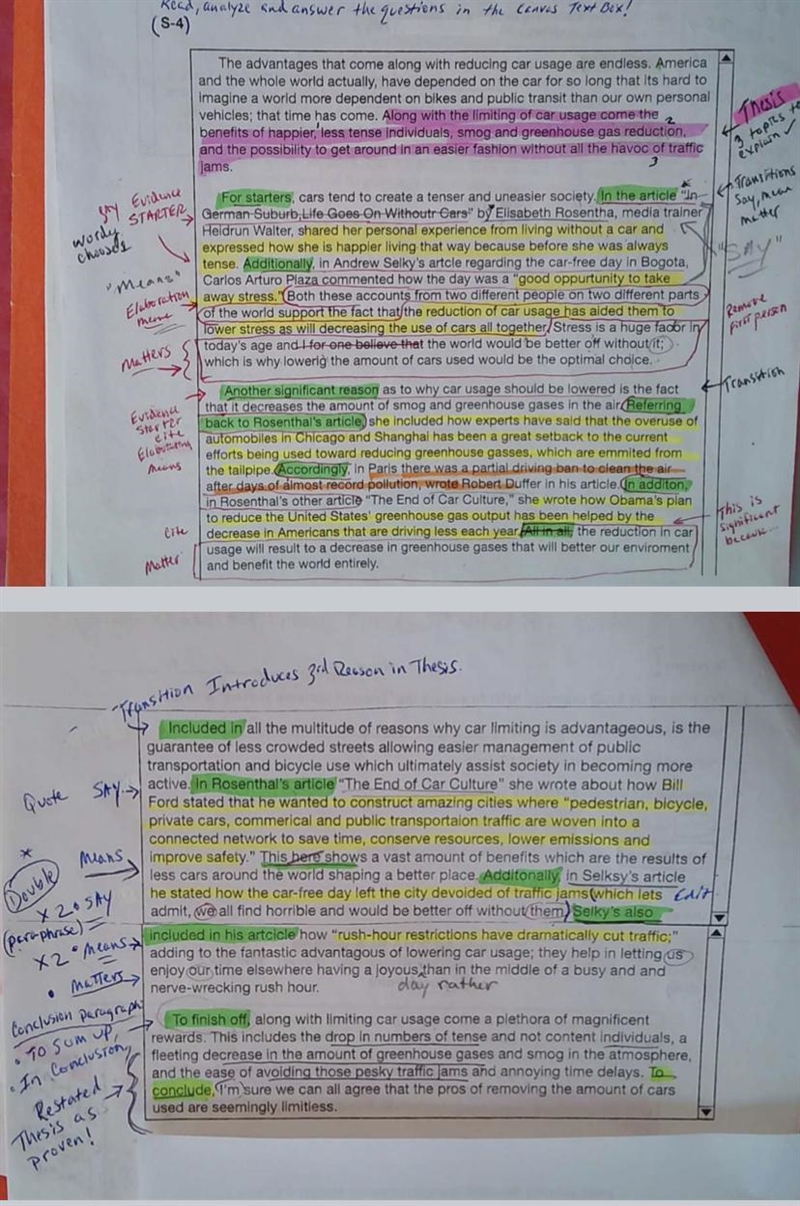 Read, analyze and answer the questions in the Canvas Text Box!
(S-4)
The advantages that come along with reducing car usage are endless. America
and the whole world actually, have depended on the car for so long that its hard to
imagine a world more dependent on bikes and public transit than our own personal
vehicles; that time has come. Along with the limiting of car usage come the
benefits of happier, less tense individuals, smog and greenhouse gas reduction,
and the possibility to get around in an easier fashion without all the havoc of traffic
jams.
1
2
3
Thesis
3 topics to
explain ✓
For starters, cars tend to create a tenser and uneasier society. In the article "In
German Suburb,Life Goes On Withoutr Cars" by Elisabeth Rosentha, media trainer
Heidrun Walter, shared her personal experience from living without a car and
expressed how she is happier living that way because before she was always
tense. Additionally, in Andrew Selky's artcle regarding the car-free day in Bogota,
Carlos Arturo Plaza commented how the day was a "good oppurtunity to take
away stress." Both these accounts from two different people on two different parts
of the world support the fact that the reduction of car usage has aided them to
lower stress as will decreasing the use of cars all together. Stress is a huge facor in
today's age and I for one believe that the world would be better off without it;
which is why lowerig the amount of cars used would be the optimal choice.
say Evidence
STARTER
wordy
chooses
"Means"
Elaboration
means
Matters
Transitions
Say, mean
matter
"SAY"
Remove
first person
Another significant reason as to why car usage should be lowered is the fact
that it decreases the amount of smog and greenhouse gases in the air. Referring
back to Rosenthal's article, she included how experts have said that the overuse of
automobiles in Chicago and Shanghai has been a great setback to the current
efforts being used toward reducing greenhouse gasses, which are emmited from
the tailpipe. Accordingly, in Paris there was a partial driving ban to clean the air
after days of almost record pollution, wrote Robert Duffer in his article. In additon,
in Rosenthal's other article "The End of Car Culture," she wrote how Obama's plan
to reduce the United States' greenhouse gas output has been helped by the
decrease in Americans that are driving less each year. All in all, the reduction in car
usage will result to a decrease in greenhouse gases that will better our enviroment
and benefit the world entirely.
Evidence
Starter
cite
Elaborating
means
cite
Matter
Transition
This is
significant
because...
Transition Introduces 3rd Reason in Thesis.
Included in all the multitude of reasons why car limiting is advantageous, is the
guarantee of less crowded streets allowing easier management of public
transportation and bicycle use which ultimately assist society in becoming more
active. In Rosenthal's article "The End of Car Culture" she wrote about how Bill
Ford stated that he wanted to construct amazing cities where "pedestrian, bicycle,
private cars, commerical and public transportaion traffic are woven into a
connected network to save time, conserve resources, lower emissions and
improve safety." This here shows a vast amount of benefits which are the results of
less cars around the world shaping a better place. Additonally, in Selksy's article
he stated how the car-free day left the city devoided of traffic jams (which lets
admit, we all find horrible and would be better off without them.) Selky's also
included in his artcicle how "rush-hour restrictions have dramatically cut traffic;"
adding to the fantastic advantagous of lowering car usage; they help in letting us
enjoy our time elsewhere having a joyous than in the middle of a busy and and
nerve-wrecking rush hour.
day rather
Edit
Quote SAY
Means
Double
x 2 • SAY
(paraphrase)
x 2 • Means
• Matters
To finish off, along with limiting car usage come a plethora of magnificent
rewards. This includes the drop in numbers of tense and not content individuals, a
fleeting decrease in the amount of greenhouse gases and smog in the atmosphere,
and the ease of avoiding those pesky traffic jams and annoying time delays. To
conclude, I'm sure we can all agree that the pros of removing the amount of cars
used are seemingly limitless.
Conclusion paragraph
• To Sum up,
• In Conclusion,
Restated
Thesis as
proven!